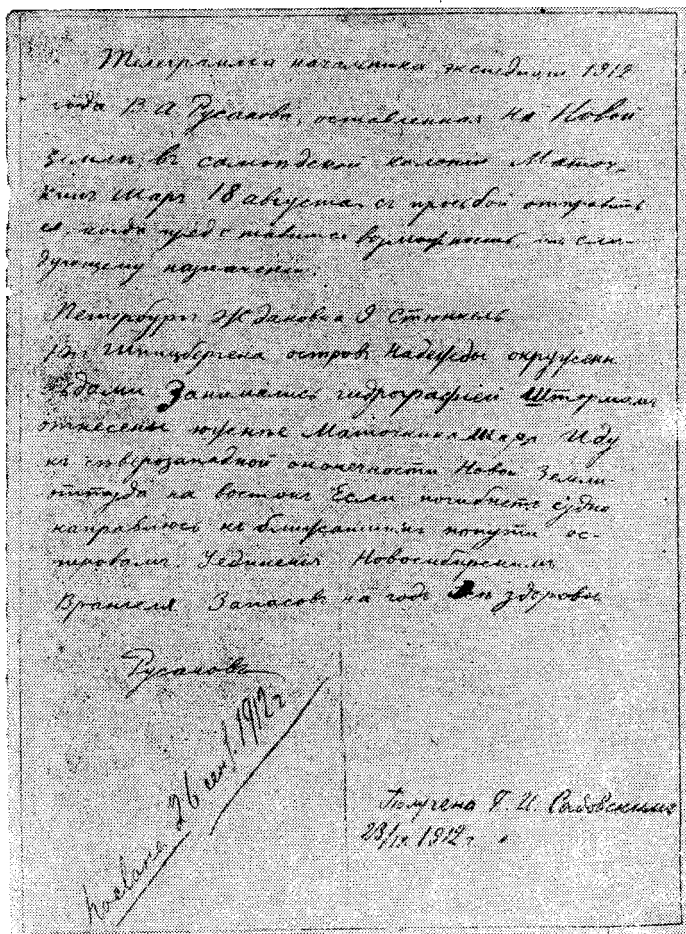 Телеграмма начальника экспедиции 1912
года В. А. Русанова, оставленная на Новой
Земле въ самоѣдской колонiи Маточ-
кинъ Шаръ 18 августа съ просьбой отправить
ее, когда представится возможность, по слѣ-
дующему назначенiю:
Петербургъ Ждановка 9 Стюнкель
Шпицбергена островъ Надежды окружены
льдами Занимались гидрографiей Штормомъ
отнесены южнѣе Маточкина шара Иду
къ сѣверозападной оконечности Новой Земли
оттуда на востокъ Если погибнетъ судно
направлюсь къ ближайшимъ попути ос-
тровамъ Уединенiя Новосибирскимъ
Врангеля Запасовъ на годъ Всѣ здоровы
Русановъ
послана 26 сент. 1912 г
Получена Г. И.
23/IX 1912 г.